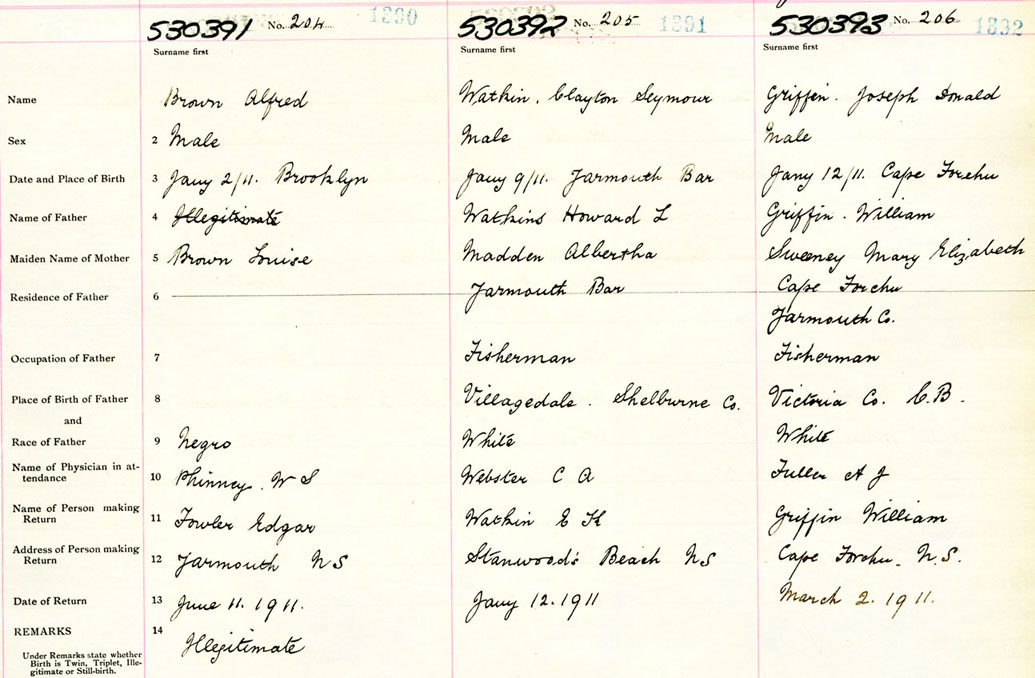 530391 No. 204 1390 530392 No. 205 1391 530393 No. 206 1392
Surname first Surname first Surname first
Name Brown Alfred Watkin. Clayton Seymour Griffin. Joseph Donald
Sex 2 Male Male Male
Date and Place of Birth 3 Jany 2/11. Brooklyn Jany 9/11. Yarmouth Bar Jany 12/11. Cape Forchu
Name of Father 4 Illegitimate Watkins Howard L Griffin. William
Maiden Name of Mother 5 Brown Louise Madden Albertha Sweeney Mary Elizabeth
Residence of Father 6 Yarmouth Bar Cape Forchu
Yarmouth Co.
Occupation of Father 7 Fisherman Fisherman
Place of Birth of Father 8 Villagedale. Shelburne Co. Victoria Co. C.B.
and
Race of Father 9 Negro White White
Name of Physician in at-
tendance 10 Phinney. W S Webster C A Fuller A J
Name of Person making
Return 11 Fowler Edgar Watkin E H Griffin William
Address of Person making
Return 12 Yarmouth NS Stanwood's Beach NS Cape Forchu. N.S.
Date of Return 13 June 11. 1911. Jany 12. 1911 March 2. 1911.
REMARKS 14 Illegitimate
Under Remarks state whether
Birth is Twin, Triplet, Ille-
gitimate or Still-birth.